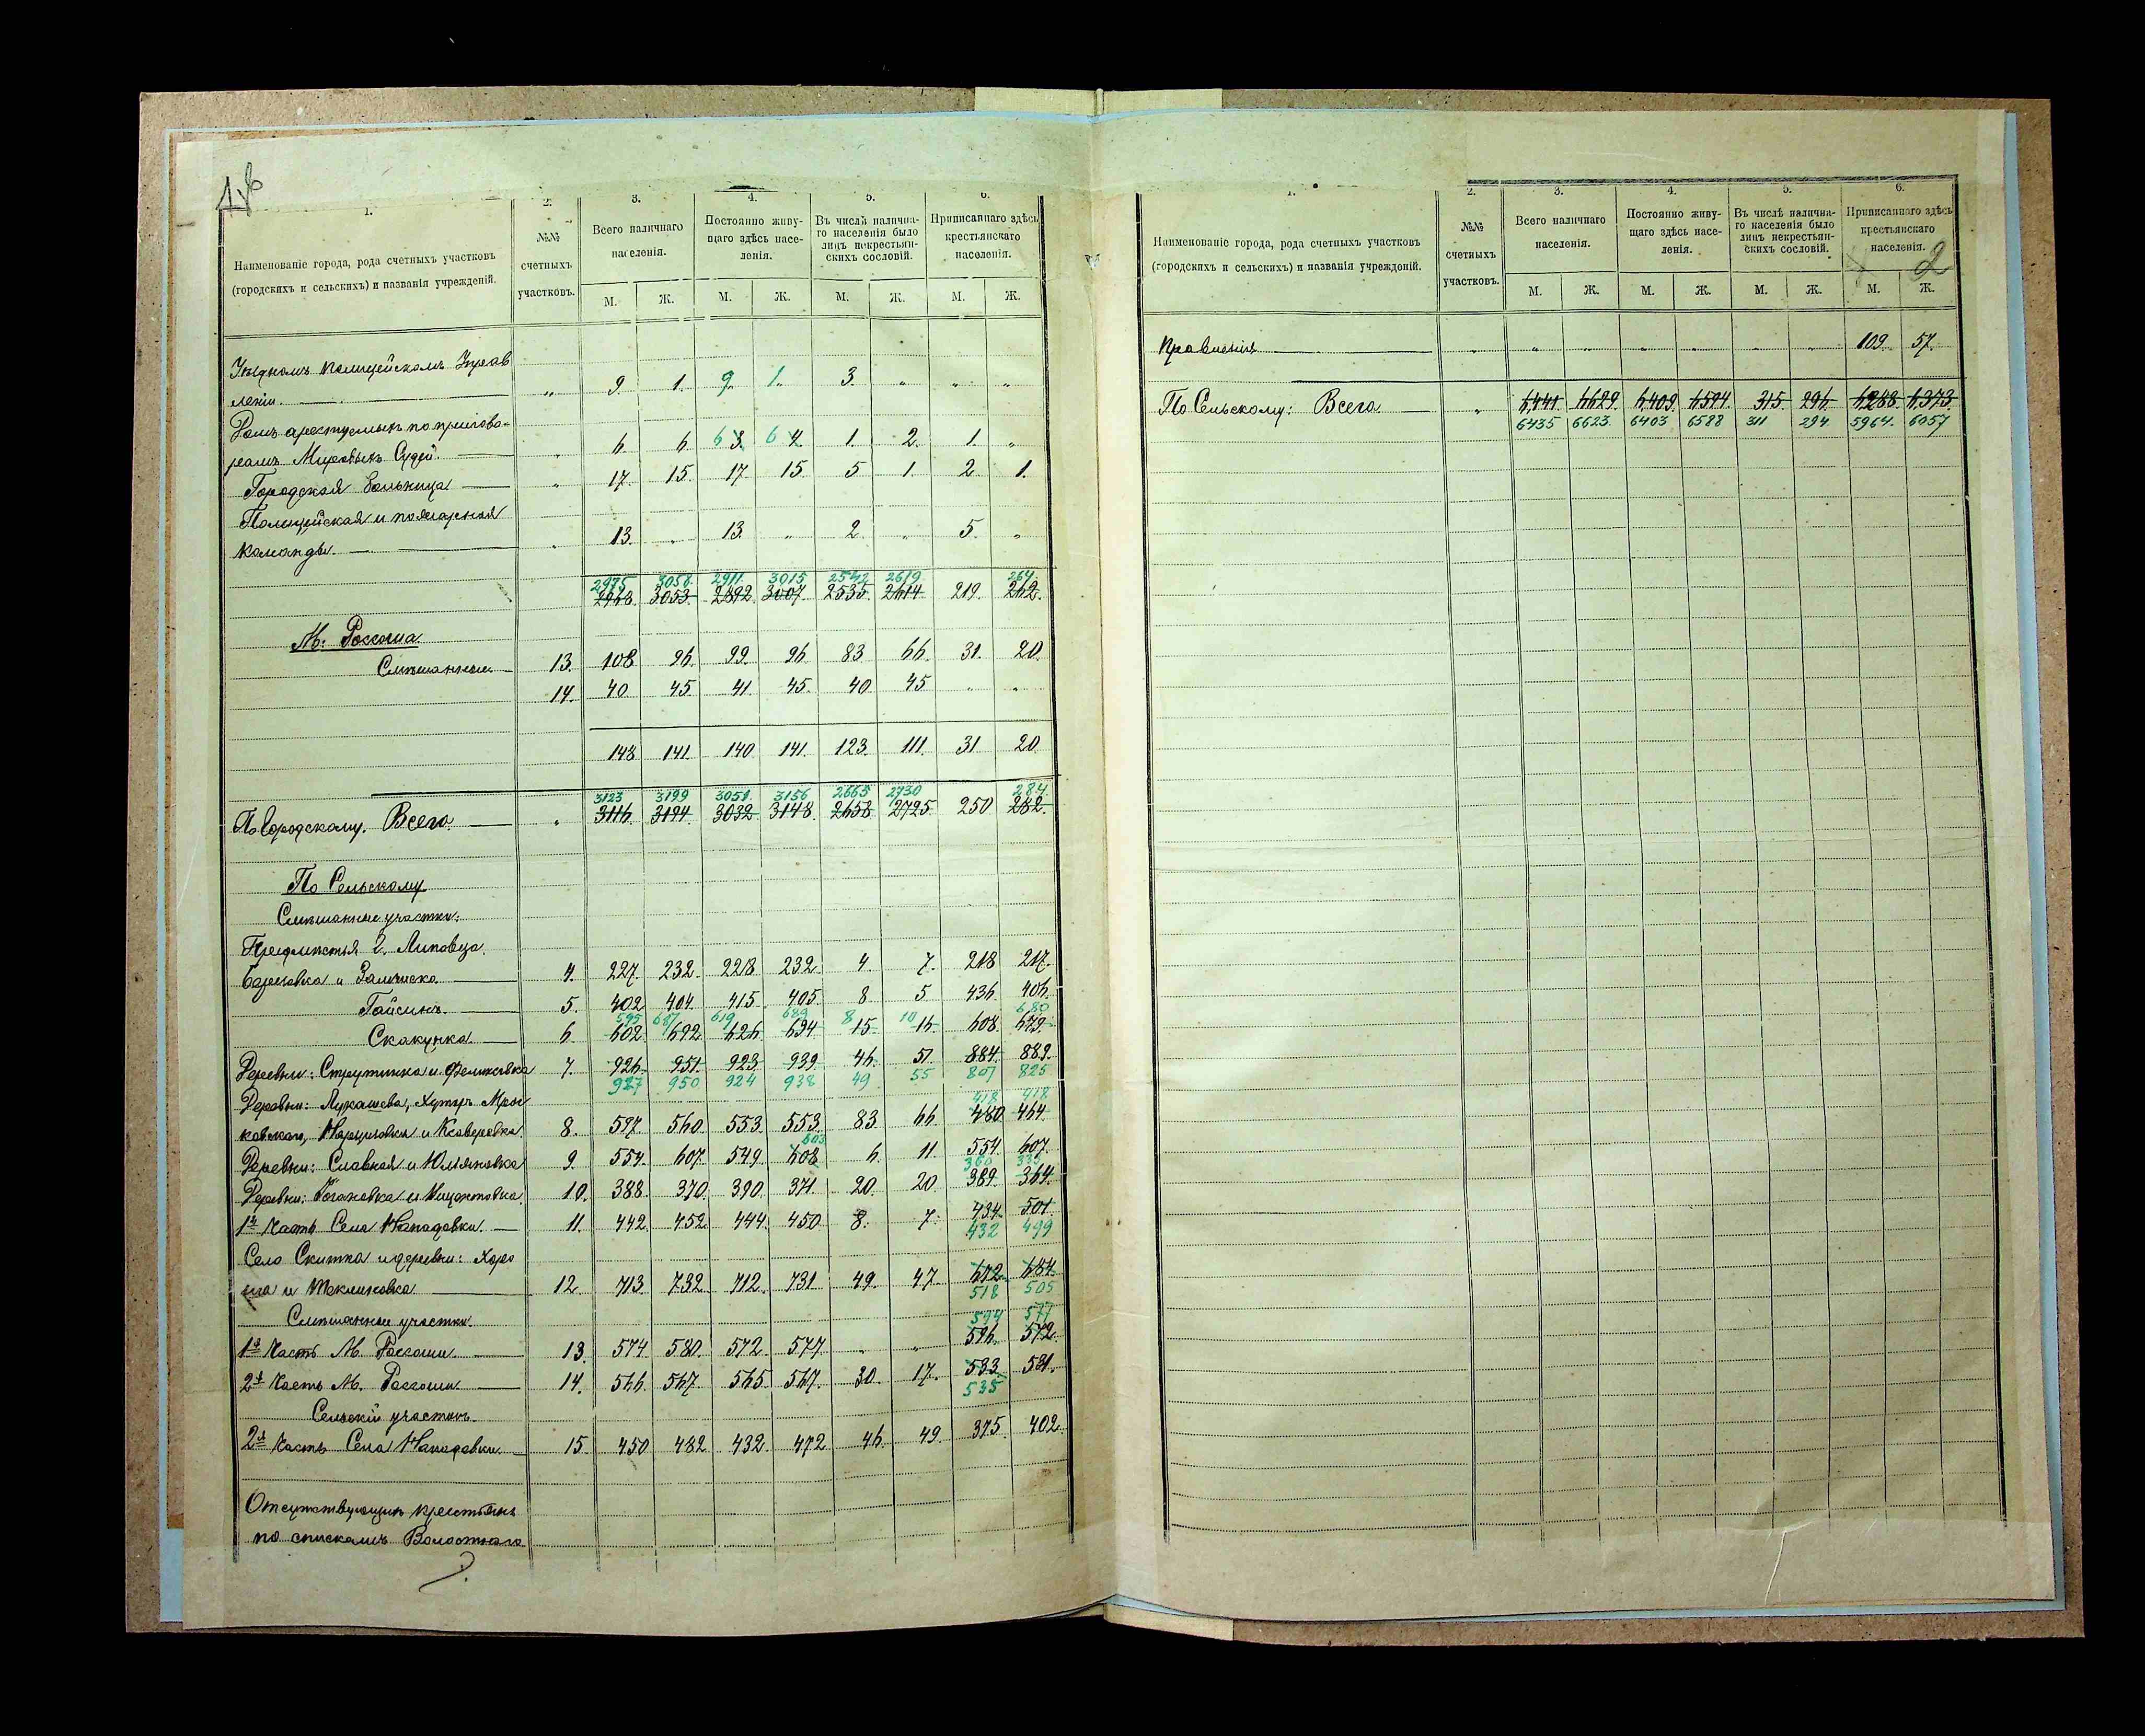 1.
Наименованіе города, рода счетныхъ участковъ
(городскихъ и сельскихъ) и названія учрежденій.
2.
№№
счетныхъ
участковъ.
3.
Всего наличнаго
населенія.
М. Ж.
4.
Постоянно живу-
щаго здѣсь насе-
ленія.
М. Ж.
5.
Въ числѣ налична-
го населенія было
лицъ некрестьян-
скихъ сословій.
М. Ж.
6.
Приписаннаго здѣсь
крестьянскаго
населенія.
М. Ж.
Уѣздномъ Полицейскомъ Управ
леніи. " 9 1. 9. 1. 3. " " "
Домъ арестуемыхъ по пригово-
рамъ Мировыхъ Судей. " 6. 6. 1. 2. 1. "
Городская больница " 17. 15. 17. 15. 5 1. 2. 1.
Полицейская и пожарная
команды " 13. " 13. " 2 " 5. "
2975 3058. 2911. 3015 2542 2619 264
2968. 3053. 2892. 3007. 2535. 2614 219. 262.
М: Россоша
Смѣшанные 13. 108 96. 99. 96 83 66. 31. 20.
14. 40 45. 41 45. 40. 45 " "
148 141. 140. 141. 123. 111. 31 20
3123 3199 3051. 3156 2665 2730 284
По Городскому. Всего. " 3116. 3194. 3032 3148. 2658 2725. 250 282.
По Сельскому
Смѣшанные участки.
Предмѣстья г. Липовца.
4. 227. 232. 228. 232 4. 7. 218 217.
Гайсинъ. 5. 402 404. 415. 405. 8 5 436. 406.
595 687 619 689 8 10 680
Скакунка. 6. 602. 692 626. 694 15 16. 608. 679.
Деревни: Струтинка и Феликсовка 7. 926. 951. 923. 939. 46. 51. 884. 889.
927 950 924 938 49 55 807 825
418 418
Деревни: Лукашева, Хуторъ Мроч
ковского, Нарцизовка и Ксаверовка. 8. 597. 560. 553. 553. 83. 66. 480. 464.
603
Деревни: Славная и Юліяновка 9. 554. 607. 549. 608 6. 11 554. 607.
360
Деревни: 10. 388. 370. 390. 371. 20. 20 389. 364.
1я Часть Села Нападовки. 11. 442. 452 444. 450 8. 7. 434. 501.
432 499
Село Скитка и деревни: Хоро
ша и Теклиновка 12. 713 732. 712. 731 49. 47. 672. 684.
518 505
Смѣшанные участки. 594 577
1я Часть М. Россоши. 13. 574. 580. 572. 577. " " 596. 572.
2я Часть М. Россоши 14. 566. 567. 565. 567. 30. 17. 533. 531.
535
Сельскій участокъ.
2я Часть Села Нападовки. 15. 450 482. 432. 472 46. 49. 375. 402.
Отсутствующихъ крестьянъ
по спискамъ Волостного
1.
Наименованіе города, рода счетныхъ участковъ
(городскихъ и сельскихъ) и названія учрежденій.
2.
№№
счетныхъ
участковъ.
3.
Всего наличнаго
населенія.
М. Ж.
4.
Постоянно живу-
щаго здѣсь насе-
ленія.
М. Ж.
5.
Въ числѣ налична-
го населенія было
лицъ некрестьян-
скихъ сословій.
М. Ж.
6.
Приписаннаго здѣсь
крестьянскаго
населенія.
М. Ж.
2
Правленія " " " " " " " 109. 57.
По Сельскому: Всего " 6,441. 6629. 6,409. 6594. 315. 296. 6288. 6,373.
6435 6623. 6403 6588 311 294 5964. 6057